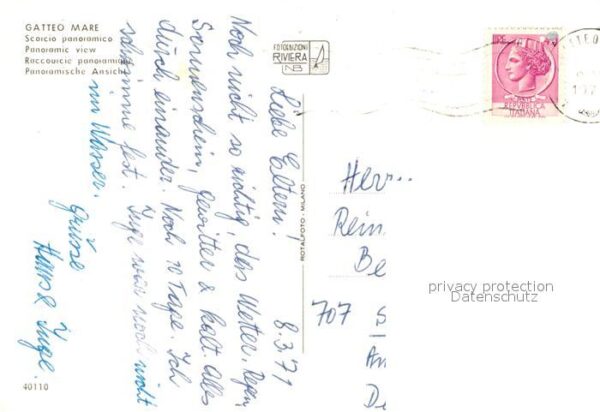 GATTEO MARE
Scorcio panoramico
Panoramic view
Raccourcie panoramique
Panoramische Ansicht
FOTOEDIZIONI
RIVIERA
NB
REPVBBLICA
ITALIANA
8.3.71
Liebe Eltern!
Noch nicht so richtig, das Wetter. Regen,
Sonnenschein, Gewitter & kalt. Alles
durch einander. Noch 10 Tage. Ich
schwimme fest. Inge war noch nicht
im Wasser.
Grüsse
Hans & Inge.
ROTALFOTO - MILANO
Herr...
Rein
Be
707 S
An
De
privacy protection
Datenschutz
40110